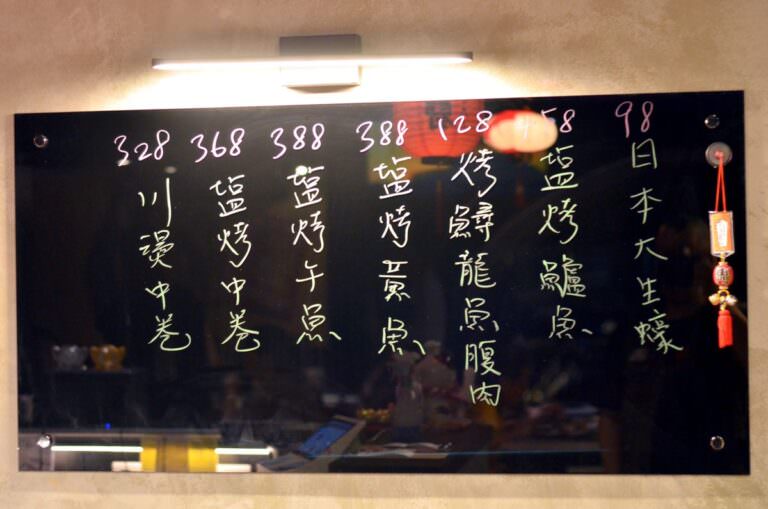 98
日本大生蠔
58
塩烤鱸魚
128
烤鱘龍魚腹肉
388
塩烤黃魚
388
塩烤午魚
368
塩烤中卷
328
川燙中卷